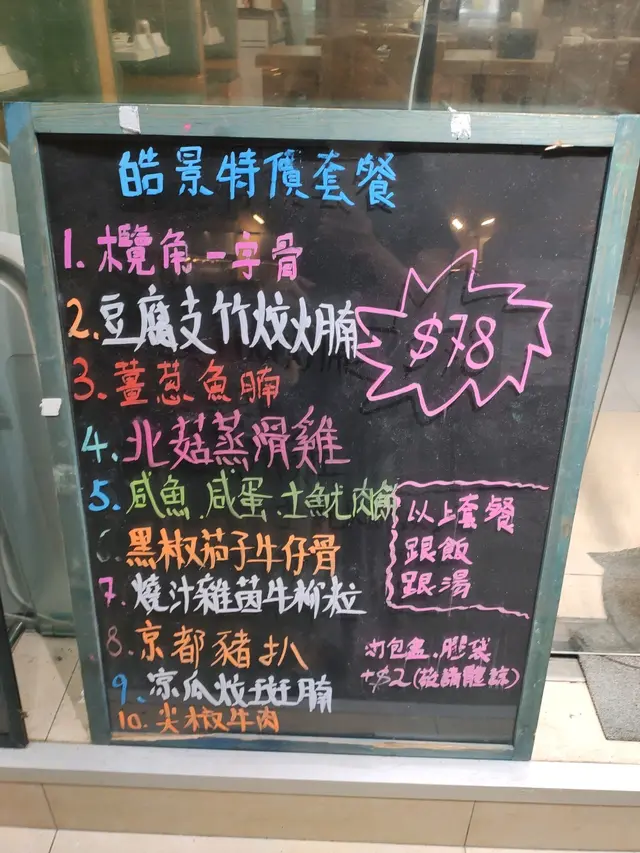 皓景特價套餐
1. 欖角一字骨
2. 豆腐支竹炆火腩
$78
3. 薑葱魚腩
4. 北菇蒸滑雞
5. 咸魚.咸蛋.土魷肉餅
以上套餐
跟飯
跟湯
6. 黑椒茄子牛仔骨
7. 燒汁雞茵牛柳粒
8. 京都豬扒
打包盒.膠袋
+$2(敬請體諒)
9. 凉瓜炆斑腩
10. 尖椒牛肉